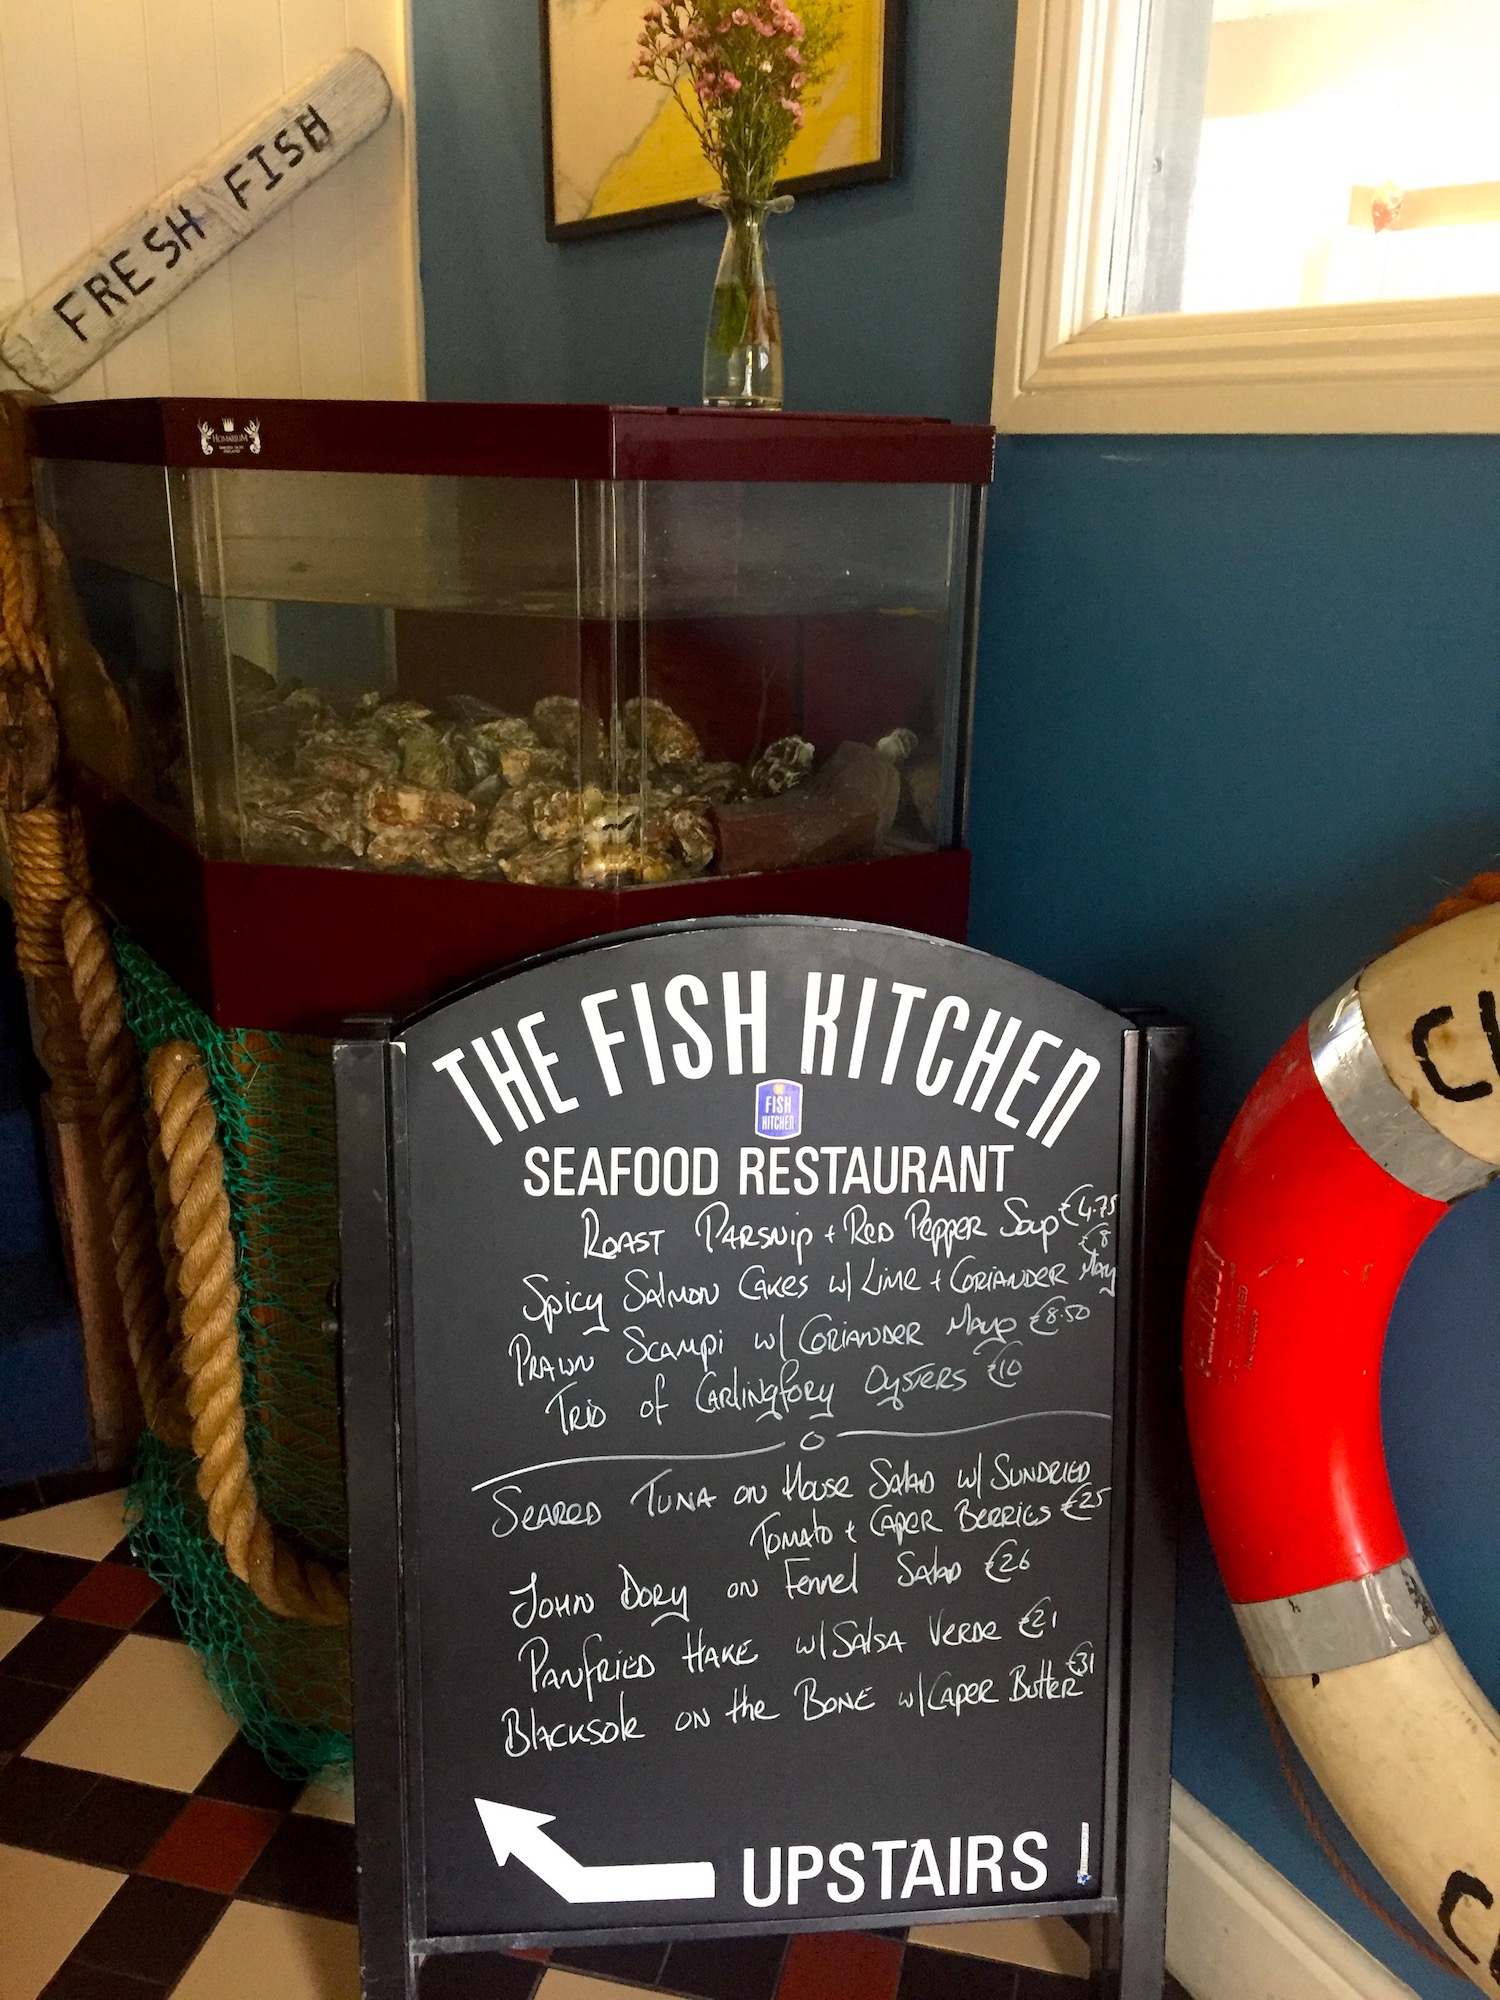 FRESH FISH
HOMARIUM
THE FISH KITCHEN
FISH
KITCHEN
SEAFOOD RESTAURANT
ROAST PARSNIP + RED PEPPER SOUP €4.75
€8
SPICY SALMON CAKES W/ LIME + CORIANDER MAY
PRAWN SCAMPI W/ CORIANDER MAYO €8.50
TRIO OF CARLINGFORD OYSTERS €10
SEARED TUNA ON HOUSE SALAD W/ SUNDRIED
TOMATO + CAPER BERRIES €25
JOHN DORY ON FENNEL SALAD €26
PANFRIED HAKE W/ SALSA VERDE €21
BLACKSOLE ON THE BONE W/ CAPER BUTTER €31
UPSTAIRS